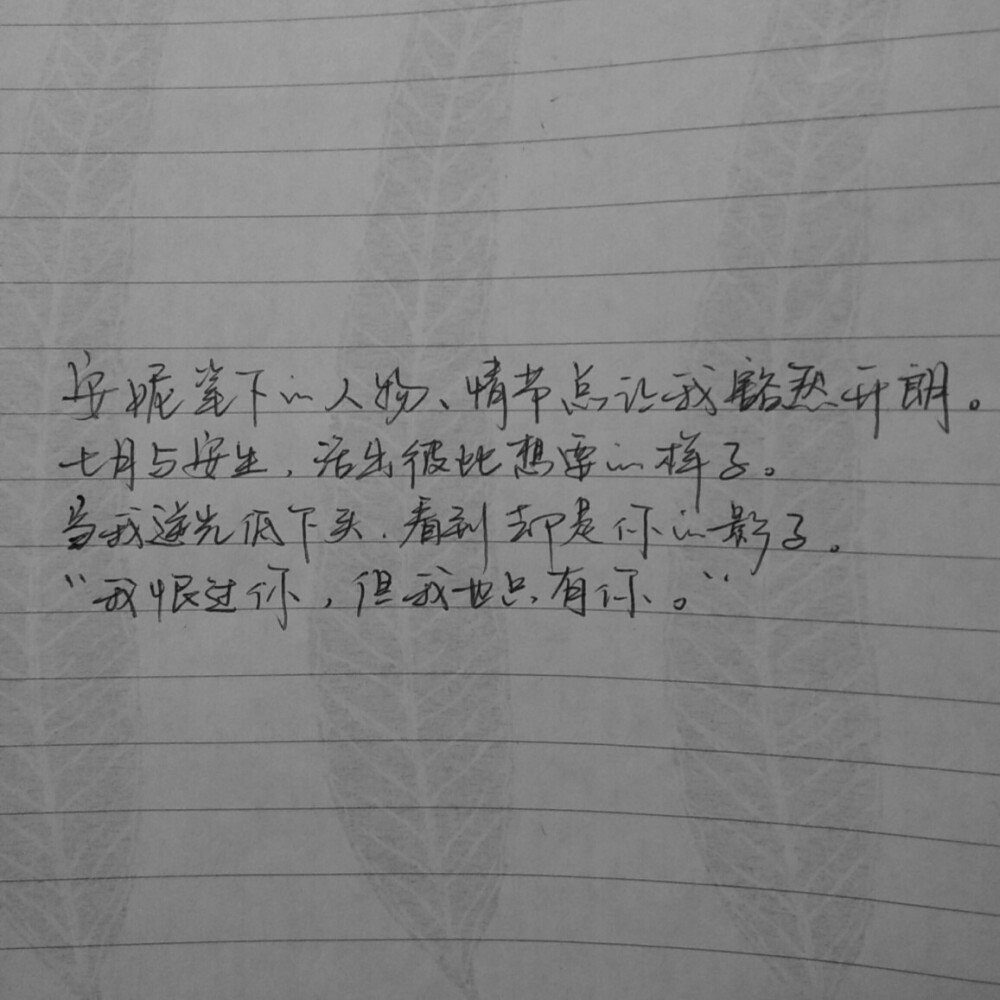 安妮笔下的人物、情节总让我豁然开朗。
七月与安生，活出彼此想要的样子。
当我逆光低下头，看到却是你的影子。
“我恨过你，但我也只有你。”